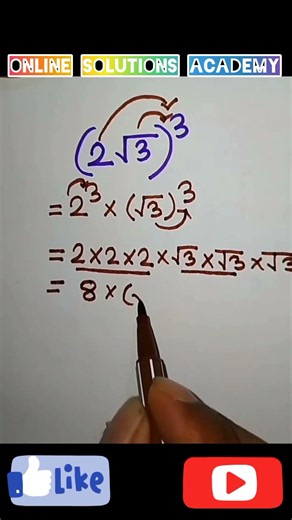 ONLINE SOLUTIONS ACADEMY
(2√3)³
= 2³ × (√3)³
= 2×2×2 × √3 × √3 × √3
= 8 × (
Like